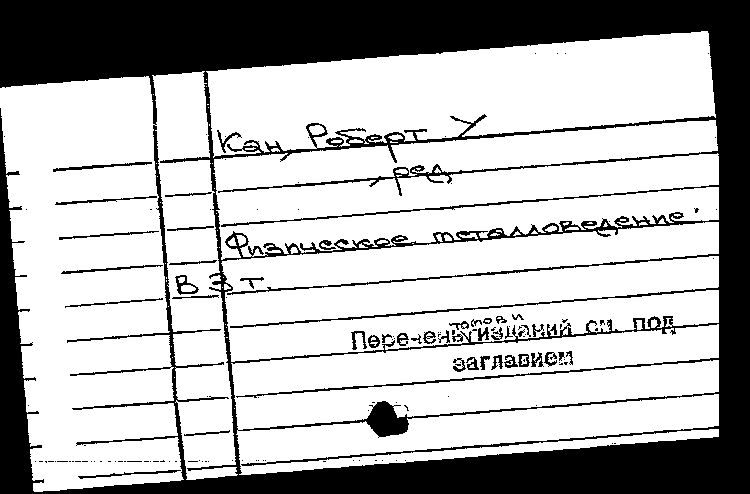 Кан, Роберт У
, ред.
Физическое металловедение.
В 3 т.
томов и
Перечень изданий см. под
заглавием